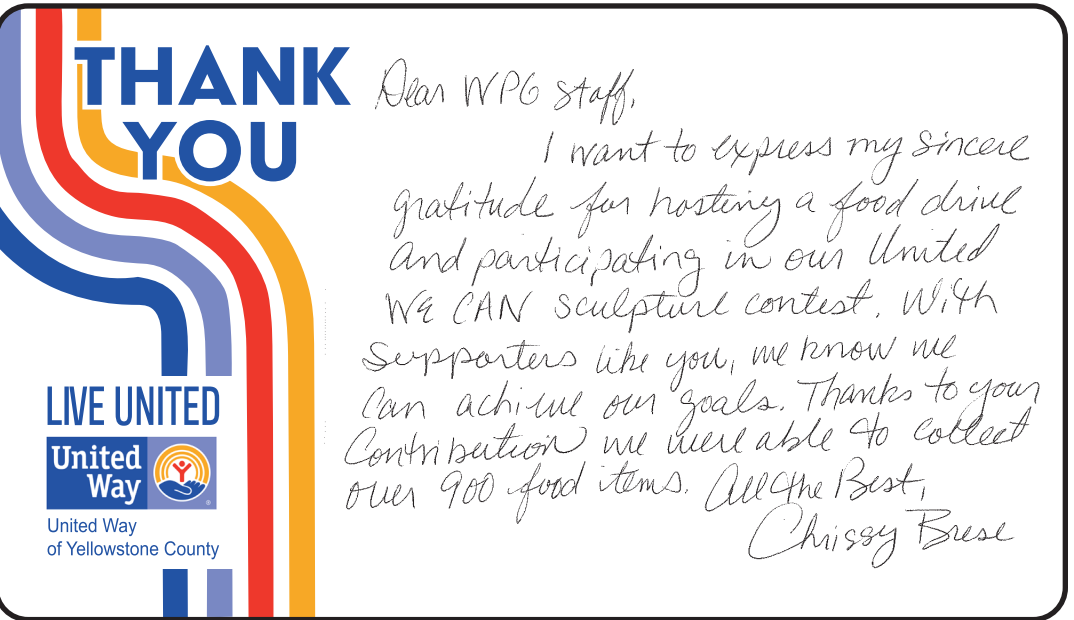 THANK
YOU
LIVE UNITED
United
Way
®
United Way
of Yellowstone County
Dear WPG staff,
I want to express my sincere
gratitude for hosting a food drive
and participating in our United
WE CAN sculpture contest. With
supporters like you, we know we
can achieve our goals. Thanks to your
contribution we were able to collect
over 900 food items. All the Best,
Chrissy Brese